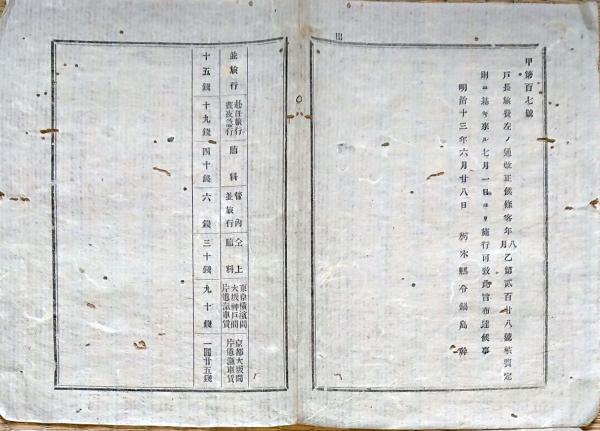 甲第百七號
戸長旅費左ノ通改正候條客年八月乙第貳百廿八號旅費定
則ニ基キ來ル七月一日ヨリ施行可致此旨布達候事
明治十三年六月廿八日 栃木縣令鍋島幹
並旅行 赴任旅行晝夜急行 賄料 管内並旅行 仝上賄料 東京横濱間大坂神戸間片道滊車賃 京都大坂間片道滊車賃
十五錢 十九錢 四十錢 六錢 三十錢 九十錢 一圓廿五錢